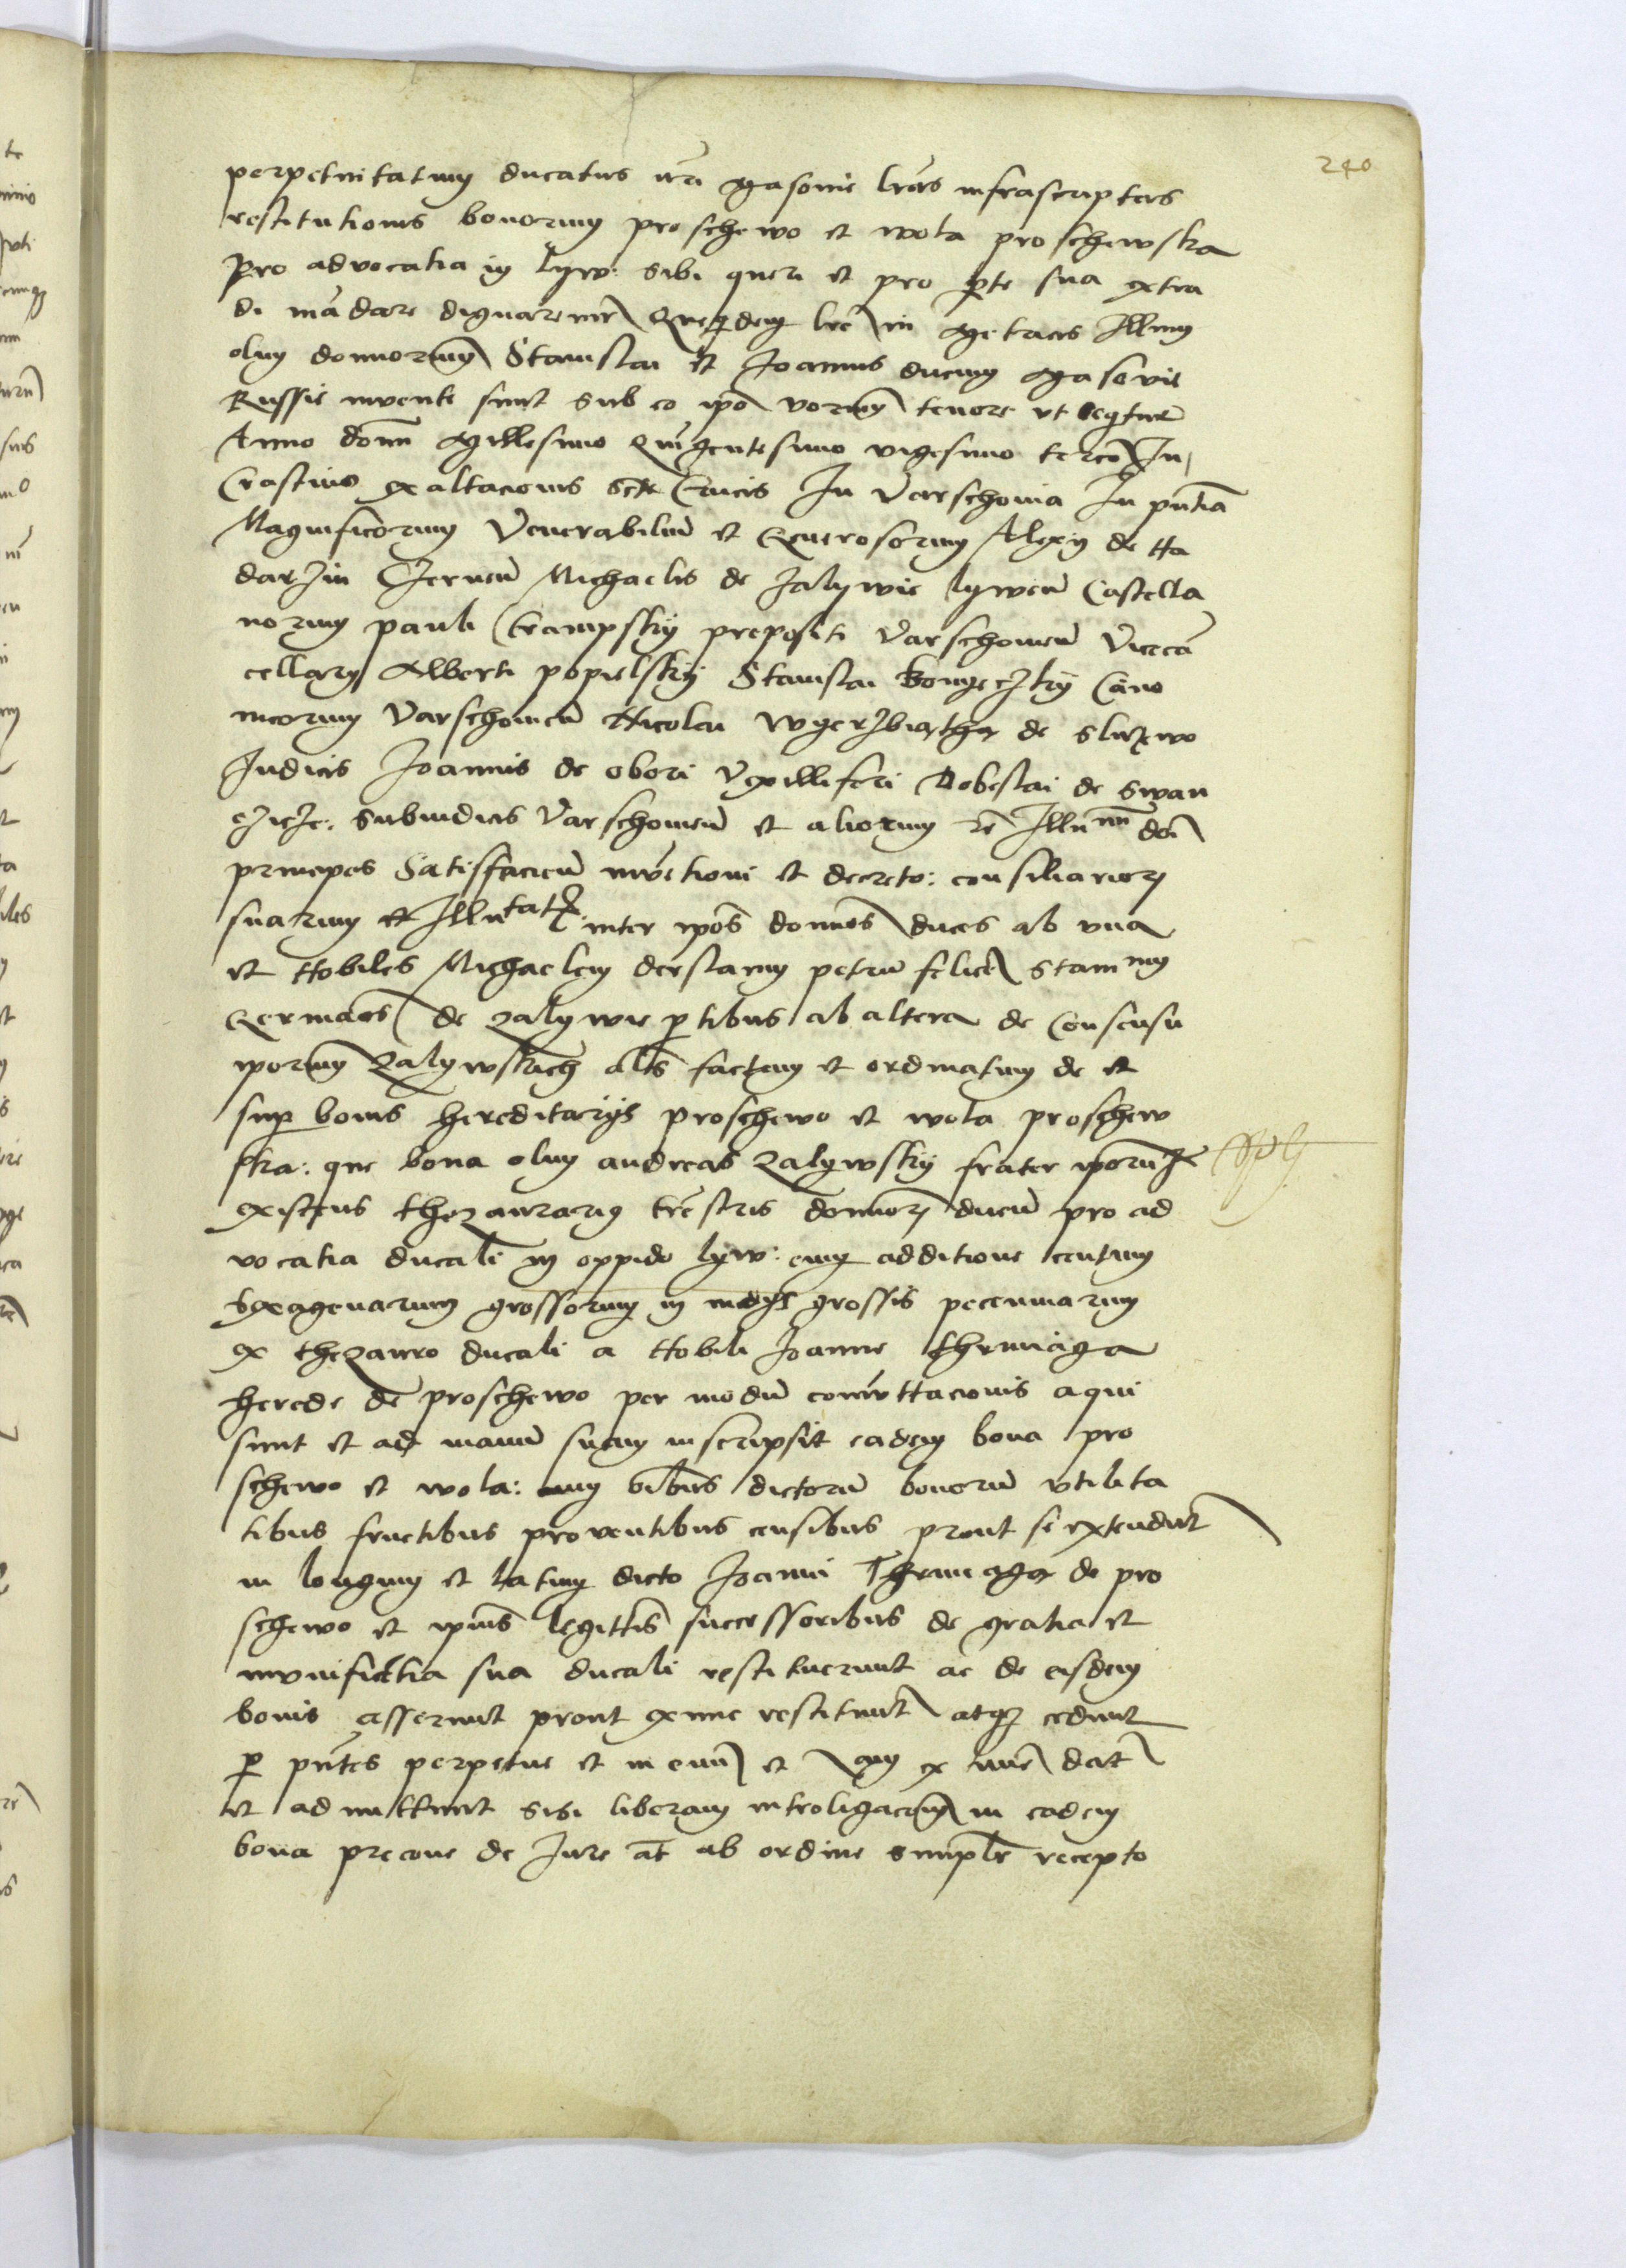 240
perpetuitatum ducatus nri Masovie lras infrascriptas
restitutionis bonorum proschewo et wola proschewska
pro advocatia in lyw: sibi queri et pro pte sua extra
di mādare dignaremr Quequidem lre in Metricis Illmm
olim dominorum Stanislai et Joannis ducum Masovie
Russie invente sunt sub eo ipo verorum tenore ut sequitur
Anno domni Millesimo Quingentesimo vigesimo tercio In
Crastino exaltacionis scte Crucis In Varschovia In pntia
Magnificorum Venerabilium et Generosorum Alexij de Na
darzin Czernen Michaelis de Zalywie lywen Castella
norum pauli Crampskij prepositi Varschovien Vicecā
cellarij Alberti popielskij Stanislai Cano
nicorum Varschovien Nicolai Wyerzbiatha de sluzewo
Iudicis Joannis de obori Vexilliferi Dobeslai de Swan
czicze: Subiudicis Varschovien et aliorum rē Illmi dni
principes Satisfacien invetioni et decreto: consiliariorum
suarum Illu tatum inter ipos dominos duces ab una
et Nobiles Michaelem derslaum petrū felicē Stanium
Germaos de Zalywie ptibus ab altera de Consensu
iporum Zalywskich als factum et ordinatum de et
sup bonis hereditarijs proschewo et wola proschew
ska: que bona olim andreas Zalywskij frater iporum
existens thezaurarius trestris dominorum ducū pro ad
vocatia ducali in oppido lyw: cum additione centum
sexagenarum grossorum in medijs grossis pecuniarum
ex thezauro ducali a Nobili Joanne
herede de proschewo per modū comuttacionis aqui
sivit et ad manū suam inscripsit eadem bona pro
schewo et wola: cum oibus dictorū bonorū utilita
tibus fructibus proventibus censibus prout se extendūt
in longum et latum dicto Joanni de pro
schewo et ipius legittis successoribus de gratia et
munificētia sua ducali restituerunt ac de eisdem
bonis asserunt prout exnunc restituūt atque cedunt
p pntes perpetue et in evum et ex nunc dat
et admittunt sibi liberam introligacōnem in eadem
bona precone de Iure at ab ordine simplr recepto